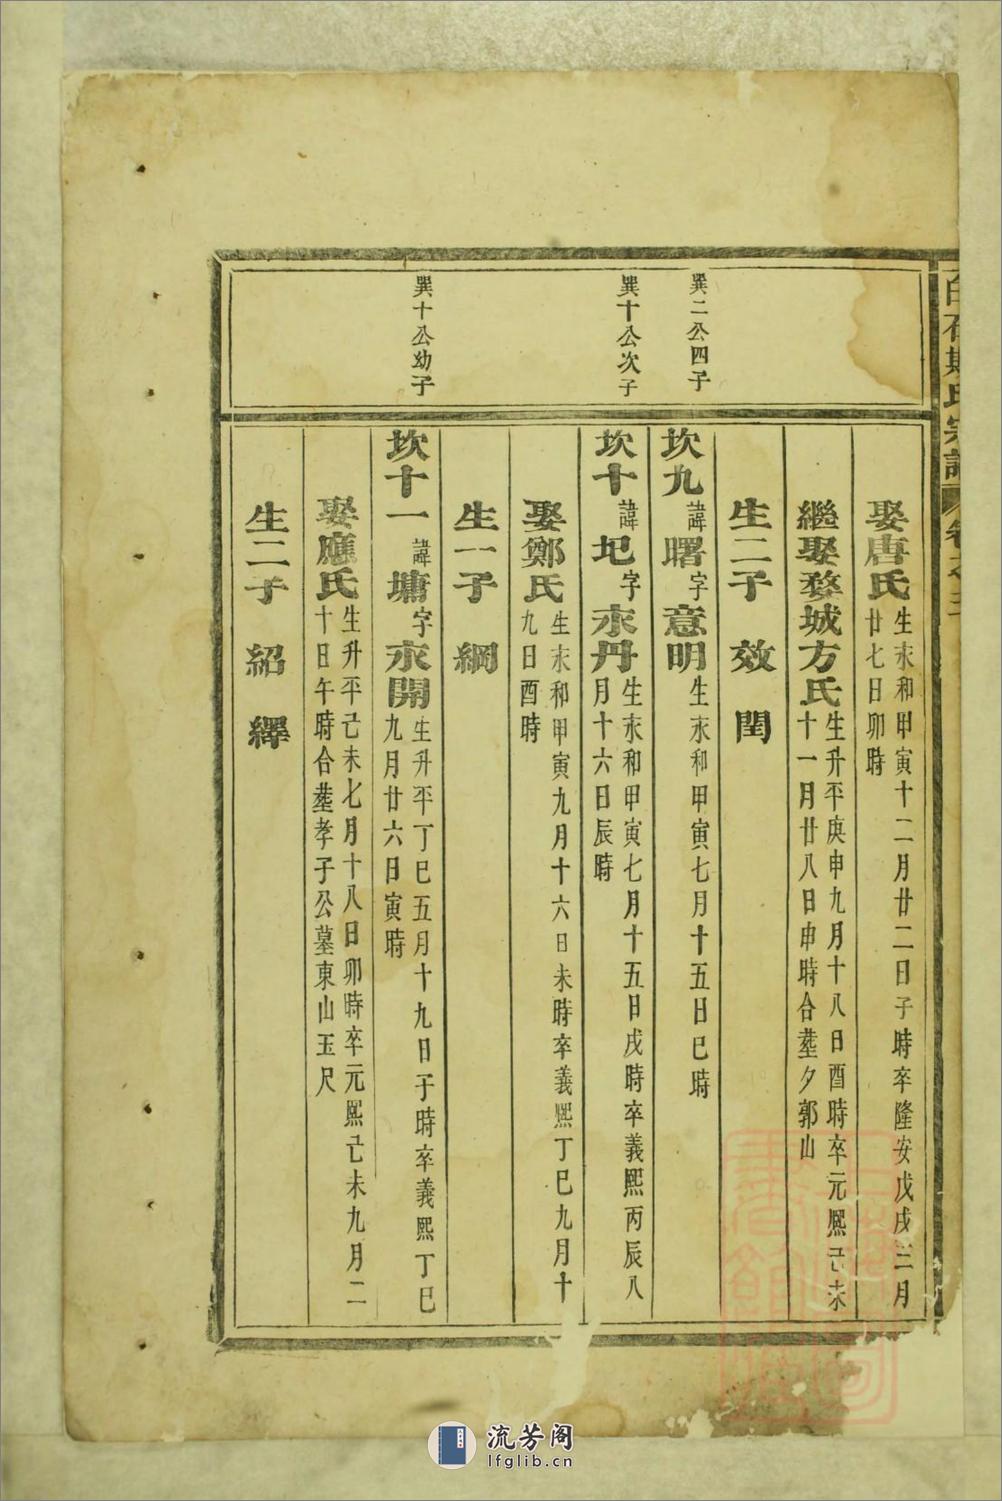 白石斯氏宗譜
巽二公四子
巽十公次子
巽十公幼子
娶唐氏生永和甲寅十二月廿二日子時卒隆安戊戌三月廿七日卯時
繼娶婺城方氏生升平庚申九月十八日酉時卒元熙己未十一月廿八日申時合塟夕郭山
生二子 效 閏
坎九諱曙字意明生永和甲寅七月十五日巳時
坎十諱圯字永丹生永和甲寅七月十五日戌時卒義熙丙辰八月十六日辰時
娶鄭氏生永和甲寅九月十六日未時卒義熙丁巳九月十九日酉時
生一子 綱
坎十一諱墉字永開生升平丁巳五月十九日子時卒義熙丁巳九月廿六日寅時
娶應氏生升平己未七月十八日卯時卒元熙己未九月二十日午時合塟孝子公墓東山玉尺
生二子 紹 繹
流芳阁
lfglib.cn